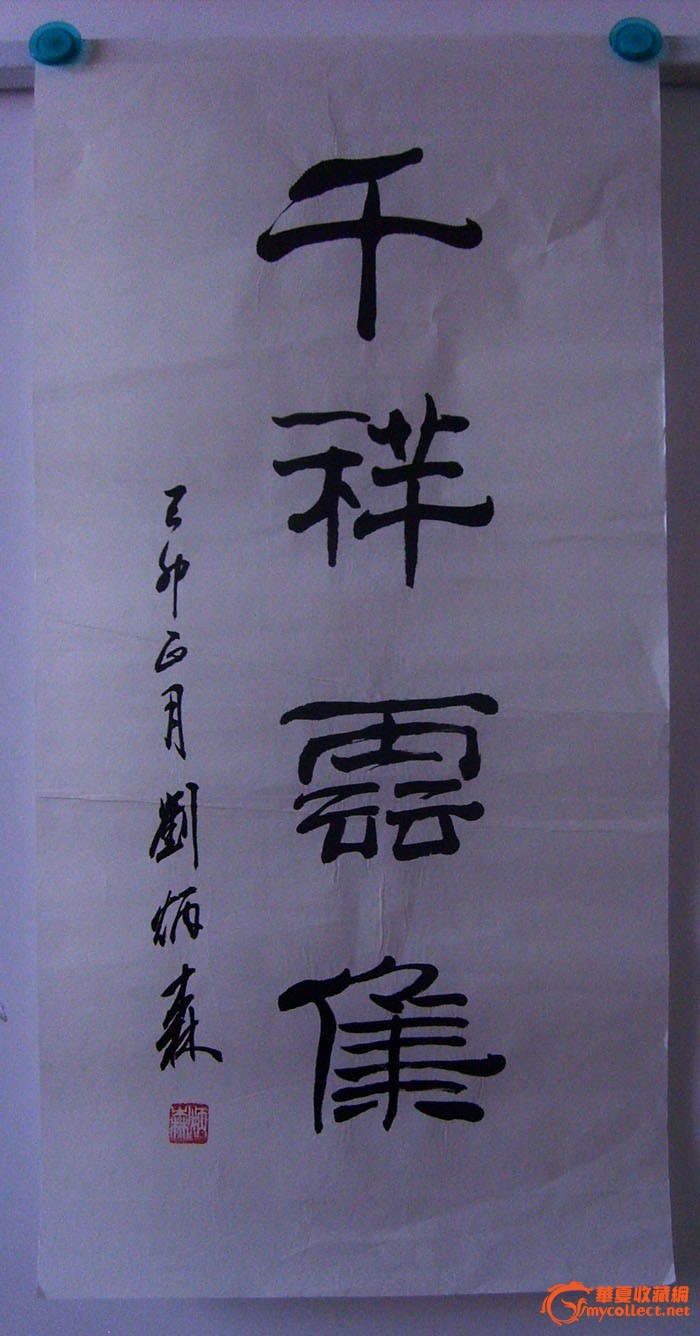 千祥雲集
己卯正月劉炳森
炳森
華夏收藏網
mycollect.net